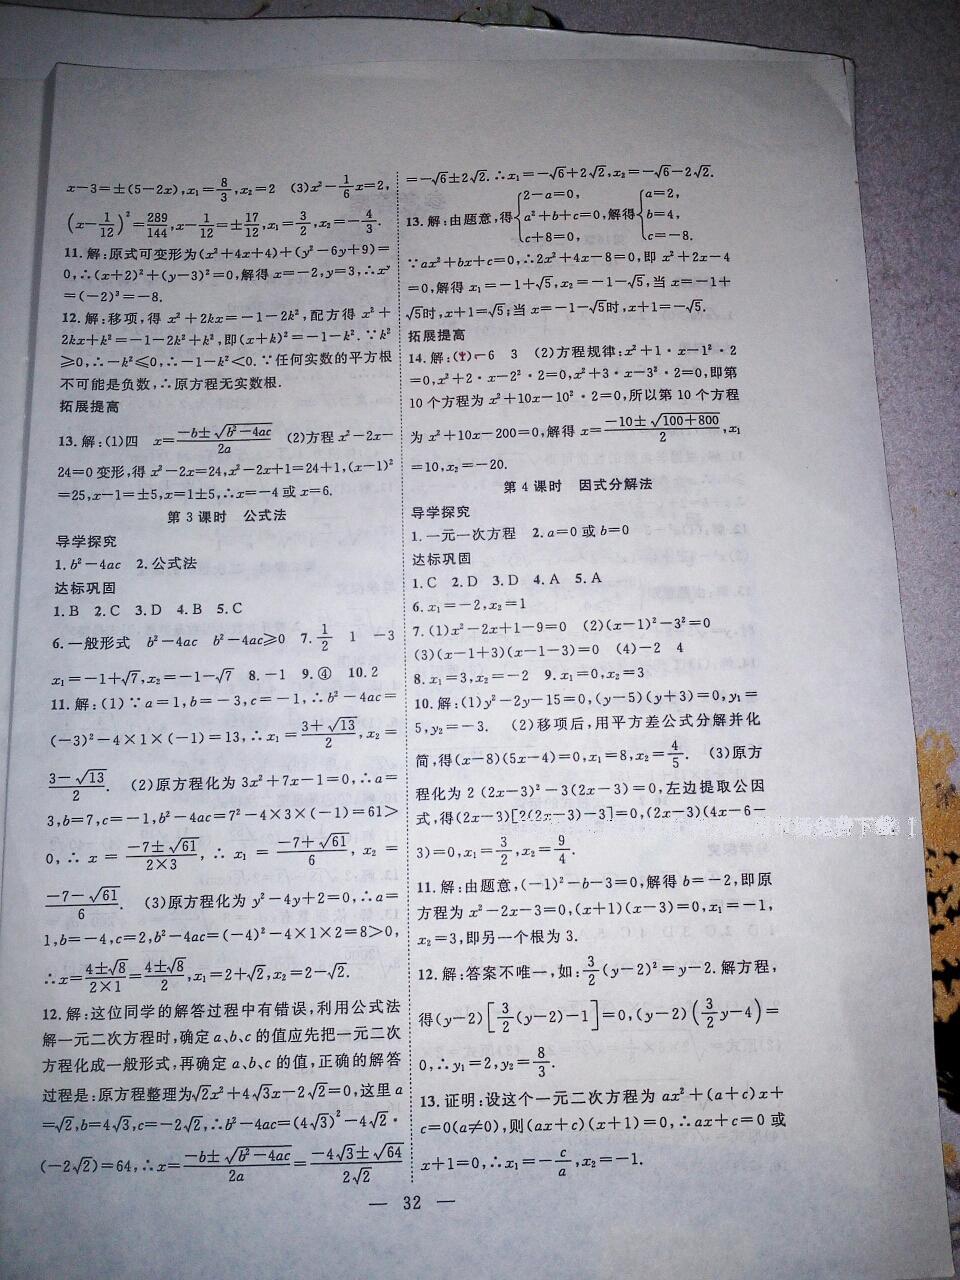 x-3=±(5-2x),x₁=8/3,x₂=2 (3)x²-1/6x=2,
(x-1/12)²=289/144,x-1/12=±17/12,x₁=3/2,x₂=-4/3.
11.解:原式可变形为(x²+4x+4)+(y²-6y+9)=
0,∴(x+2)²+(y-3)²=0,解得x=-2,y=3,∴xʸ
=(-2)³=-8.
12.解:移项,得x²+2kx=-1-2k²,配方得x²+
2kx+k²=-1-2k²+k²,即(x+k)²=-1-k².∵k²
≥0,∴-k²≤0,∴-1-k²<0.∵任何实数的平方根
不可能是负数,∴原方程无实数根.
拓展提高
13.解:(1)四 x=(-b±√(b²-4ac))/2a (2)方程x²-2x-
24=0变形,得x²-2x=24,x²-2x+1=24+1,(x-1)²
=25,x-1=±5,x=1±5,∴x=-4或x=6.
第3课时 公式法
导学探究
1.b²-4ac 2.公式法
达标巩固
1.B 2.C 3.D 4.B 5.C
6.一般形式 b²-4ac b²-4ac≥0 7.1/2 1 -3
x₁=-1+√7,x₂=-1-√7 8.-1 9.④ 10.2
11.解:(1)∵a=1,b=-3,c=-1,∴b²-4ac=
(-3)²-4×1×(-1)=13,∴x₁=(3+√13)/2,x₂=
(3-√13)/2. (2)原方程化为3x²+7x-1=0,∴a=
3,b=7,c=-1,b²-4ac=7²-4×3×(-1)=61>
0,∴x=(-7±√61)/(2×3),∴x₁=(-7+√61)/6,x₂=
(-7-√61)/6. (3)原方程化为y²-4y+2=0,∴a=
1,b=-4,c=2,b²-4ac=(-4)²-4×1×2=8>0,
∴x=(4±√8)/(2×1)=(4±√8)/2,x₁=2+√2,x₂=2-√2.
12.解:这位同学的解答过程中有错误,利用公式法
解一元二次方程时,确定a、b、c的值应先把一元二次
方程化成一般形式,再确定a、b、c的值,正确的解答
过程是:原方程整理为√2x²+4√3x-2√2=0,这里a
=√2,b=4√3,c=-2√2,∴b²-4ac=(4√3)²-4√2·
(-2√2)=64,∴x=(-b±√(b²-4ac))/2a=(-4√3±√64)/(2√2)
=-√6±2√2.∴x₁=-√6+2√2,x₂=-√6-2√2.
13.解:由题意,得{2-a=0, a²+b+c=0, c+8=0, 解得{a=2, b=4, c=-8.
∵ax²+bx+c=0,∴2x²+4x-8=0,即x²+2x-4
=0,解得x₁=-1+√5,x₂=-1-√5,当x=-1+
√5时,x+1=√5;当x=-1-√5时,x+1=-√5.
拓展提高
14.解:(1)-6 3 (2)方程规律:x²+1·x-1²·2
=0,x²+2·x-2²·2=0,x²+3·x-3²·2=0,即第
10个方程为x²+10x-10²·2=0,所以第10个方程
为x²+10x-200=0,解得x=(-10±√(100+800))/2,x₁
=10,x₂=-20.
第4课时 因式分解法
导学探究
1.一元一次方程 2.a=0或b=0
达标巩固
1.C 2.D 3.D 4.A 5.A
6.x₁=-2,x₂=1
7.(1)x²-2x+1-9=0 (2)(x-1)²-3²=0
(3)(x-1+3)(x-1-3)=0 (4)-2 4
8.x₁=3,x₂=-2 9.x₁=0,x₂=3
10.解:(1)y²-2y-15=0,(y-5)(y+3)=0,y₁=
5,y₂=-3. (2)移项后,用平方差公式分解并化
简,得(x-8)(5x-4)=0,x₁=8,x₂=4/5. (3)原方
程化为2(2x-3)²-3(2x-3)=0,左边提取公因
式,得(2x-3)[2(2x-3)-3]=0,(2x-3)(4x-6-
3)=0,x₁=3/2,x₂=9/4.
11.解:由题意,(-1)²-b-3=0,解得b=-2,即原
方程为x²-2x-3=0,(x+1)(x-3)=0,x₁=-1,
x₂=3,即另一个根为3.
12.解:答案不唯一,如:3/2(y-2)²=y-2.解方程,
得(y-2)[3/2(y-2)-1]=0,(y-2)(3/2y-4)=
0,∴y₁=2,y₂=8/3.
13.证明:设这个一元二次方程为ax²+(a+c)x+
c=0(a≠0),则(ax+c)(x+1)=0,∴ax+c=0或
x+1=0,∴x₁=-c/a,x₂=-1.
— 32 —